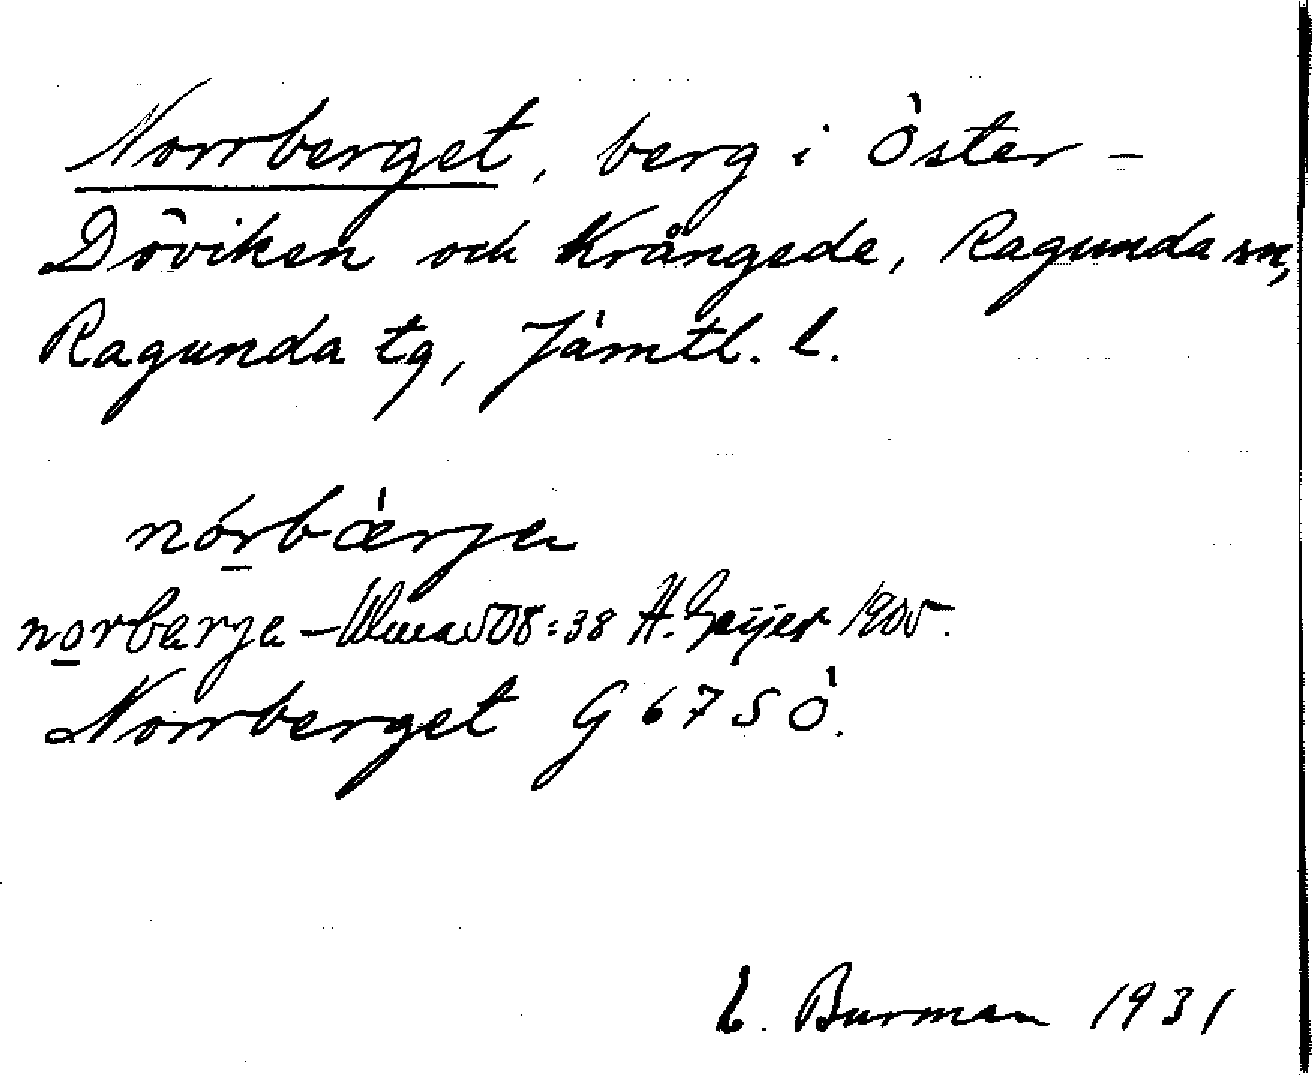 Norrberget, berg i Öster-
Döviken och Krångede, Ragunda sn,
Ragunda tg, Jämtl. l.
nórbærje
norbærje – 508:38 H. Geijer 1905.
Norrberget G 67 S Ö.
L. Burman 1931